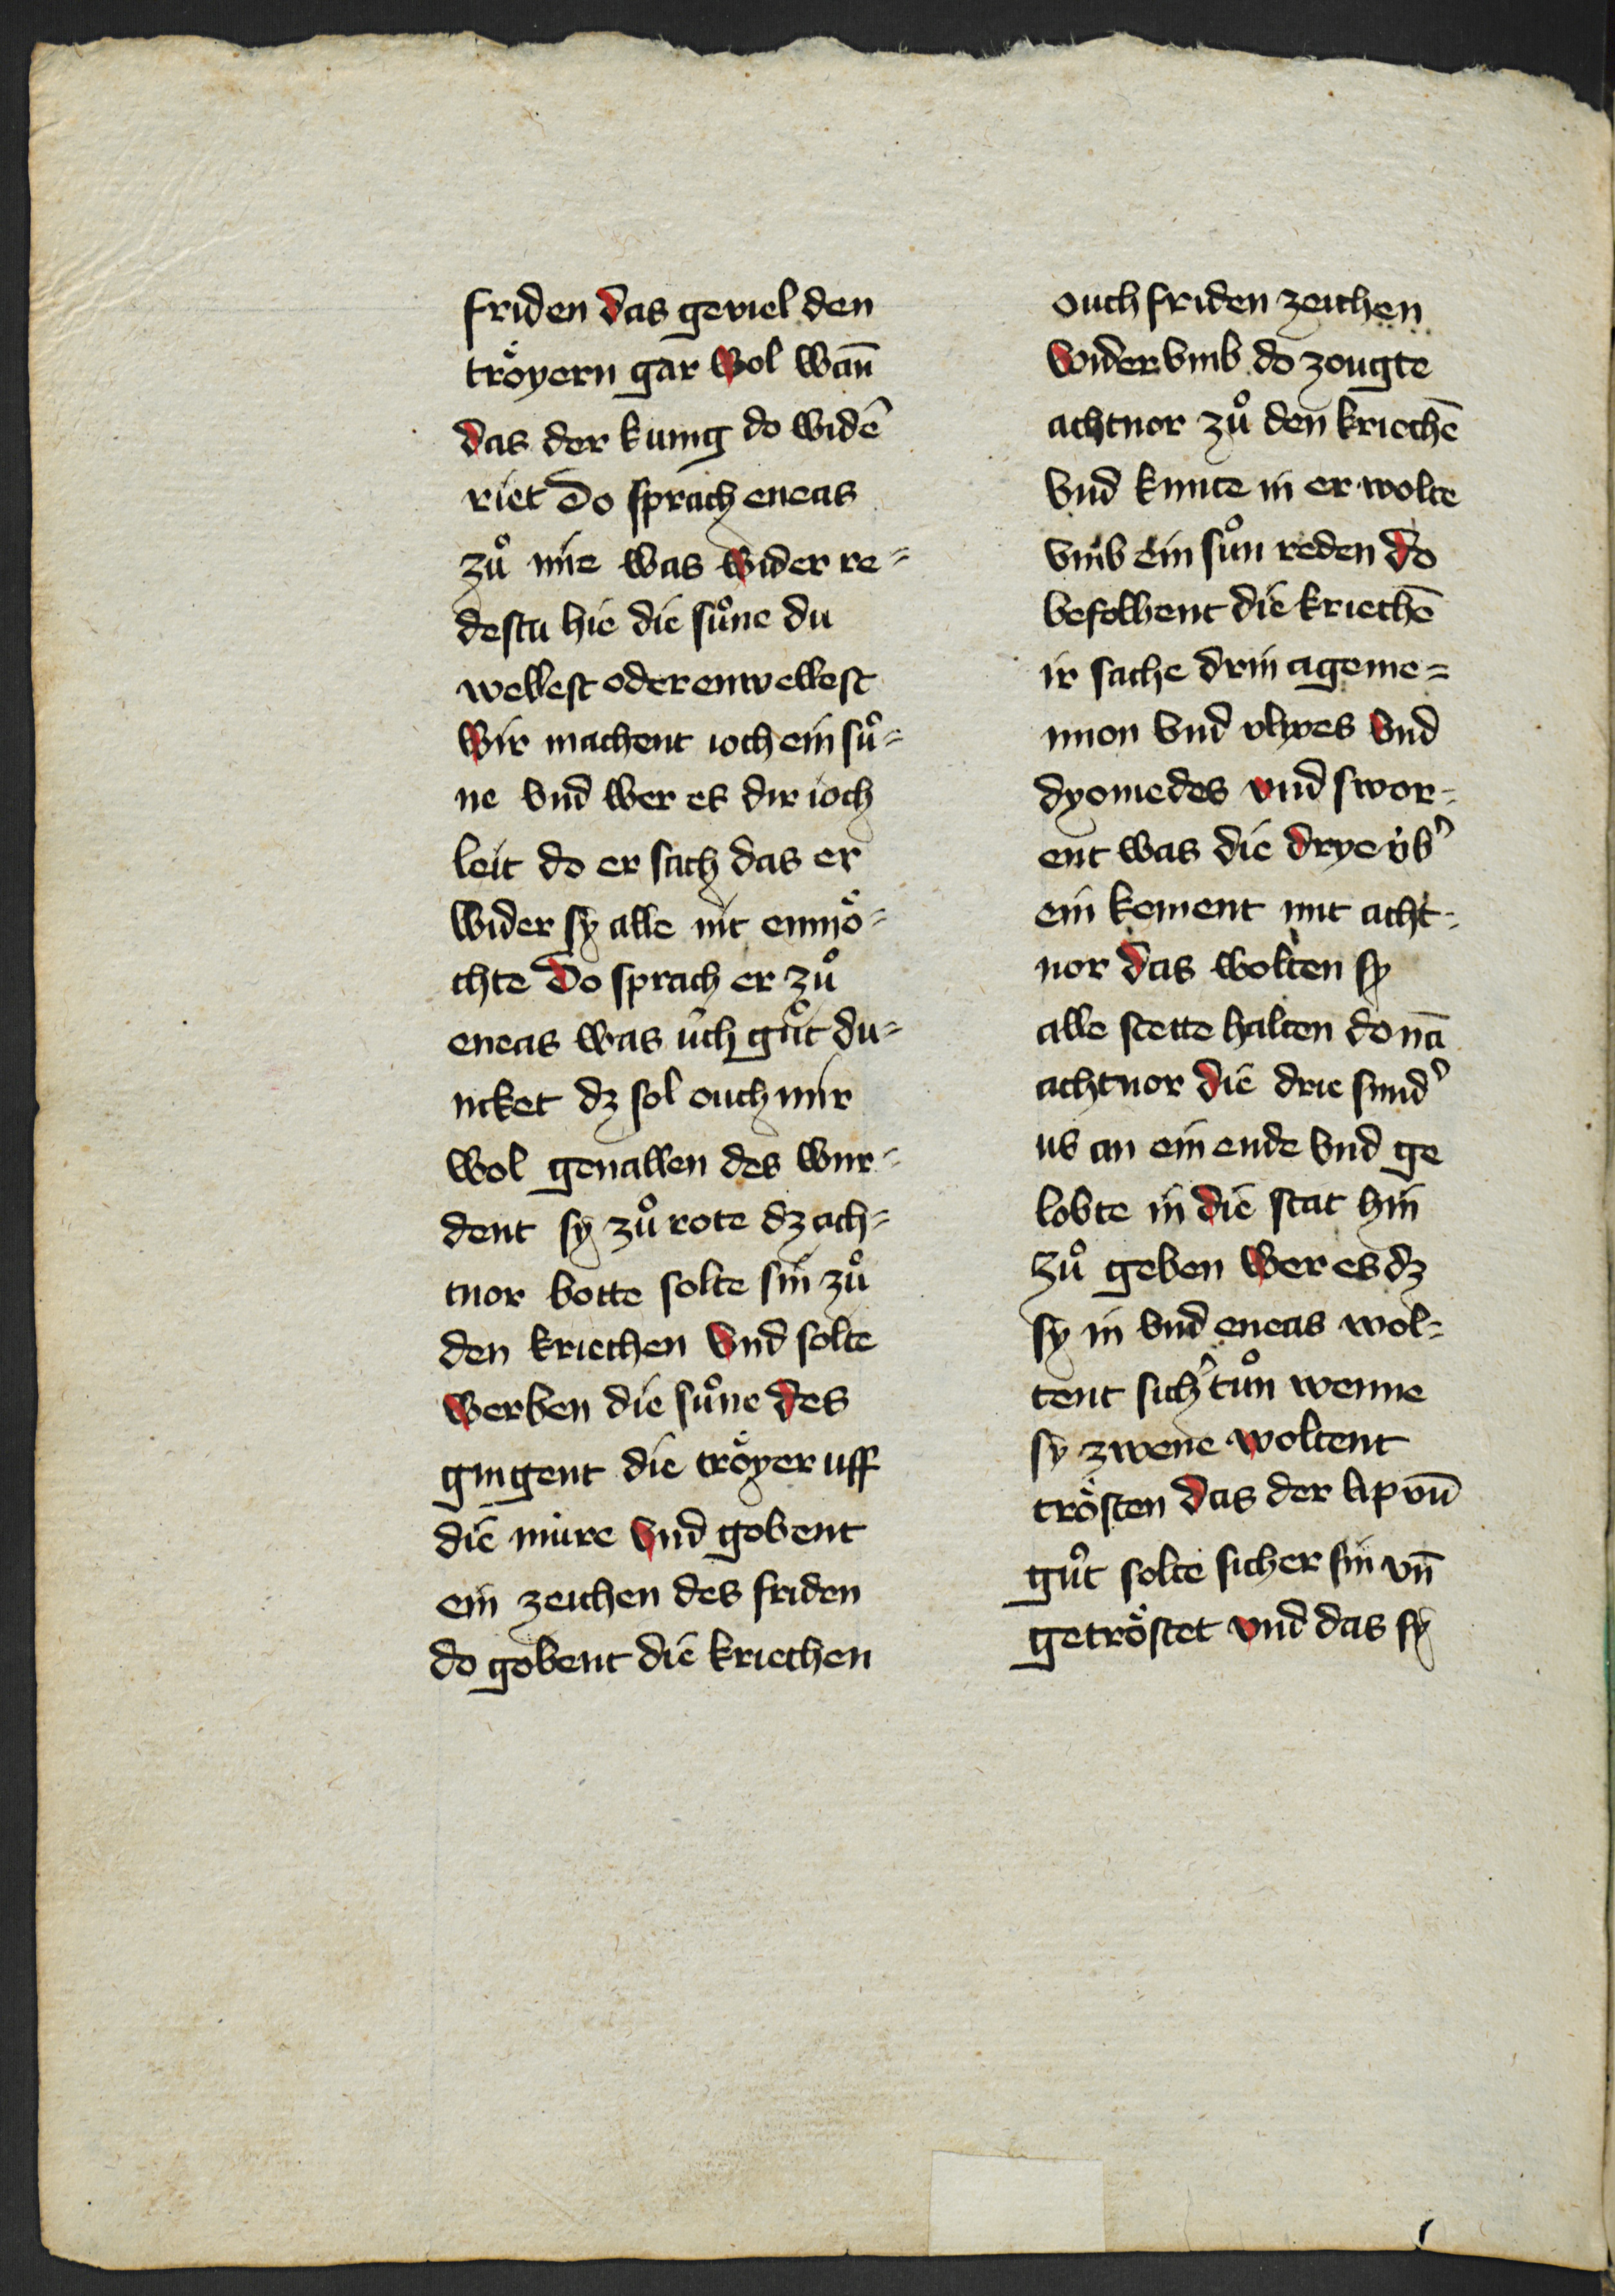 friden das geviel den
tröyern gar wol wañ
das der kunig do widē
riet Do sprach eneas
zuͦ mie was wider re=
destu hie die suͦne du
wellest oder enwellest
wir machent ioch ein suͦ=
ne vnd wer es dir ioch
leit do er sach das er
wider sy alle nit enmoͤ=
chte Do sprach er zuͦ
eneas was úch guͦt du=
ncket dz sol ouch mir
wol geuallen des wur=
dent sy zuͦ rote dz ach=
tnor botte solte sin zuͦ
den kriechen vnd solte
werben die suͦne des
gingent die tröyer uff
die mure vnd gobent
ein zeichen des friden
do gobent die kriechen
ouch friden zeichen
wider vmb do zougte
achtnor zuͦ den kriechē
vnd kunte in er wolte
vmb ein suͦn reden do
befolhent die kriechē
ir sache drin ageme=
nnon vnd vlyxes vnd
dyomedes vnd swor=
ent was die drye úbʾ
ein kement mit acht=
nor das wolten sy
alle stette halten do nā
achtnor die drie sundʾ
us an ein ende vnd ge
lobte in die stat hin
zuͦ geben wer es dz
sy in vnd eneas wol=
tent sichʾ tuͦn wenne
sy zwene woltent
trösten das der lip vū
guͦt solte sicher sin vn̄
getröstet vnd das sy